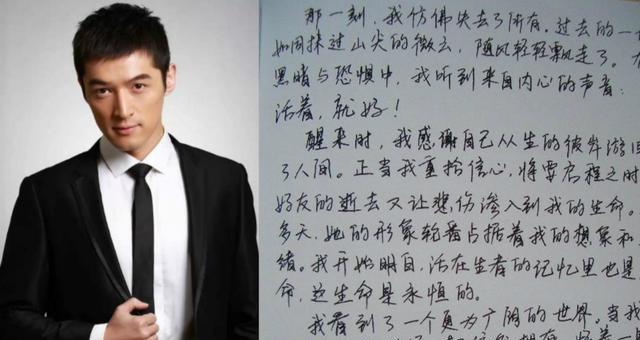 那一刻，我仿佛失去了所有，过去的一
如同抹过山尖的微云，随风轻轻飘走了。
黑暗与恐惧中，我听到来自内心的声音：
活着，就好！
醒来时，我感谢自己从生的彼岸游回
了人间。正当我重拾信心，将要启程之时
好友的逝去又让悲伤渗入到我的生命。
多天，她的形象轮番占据着我的想象和
绪。我开始明白，活在生者的记忆里也是
命，这生命是永恒的。
我看到了一个更为广阔的世界，当我